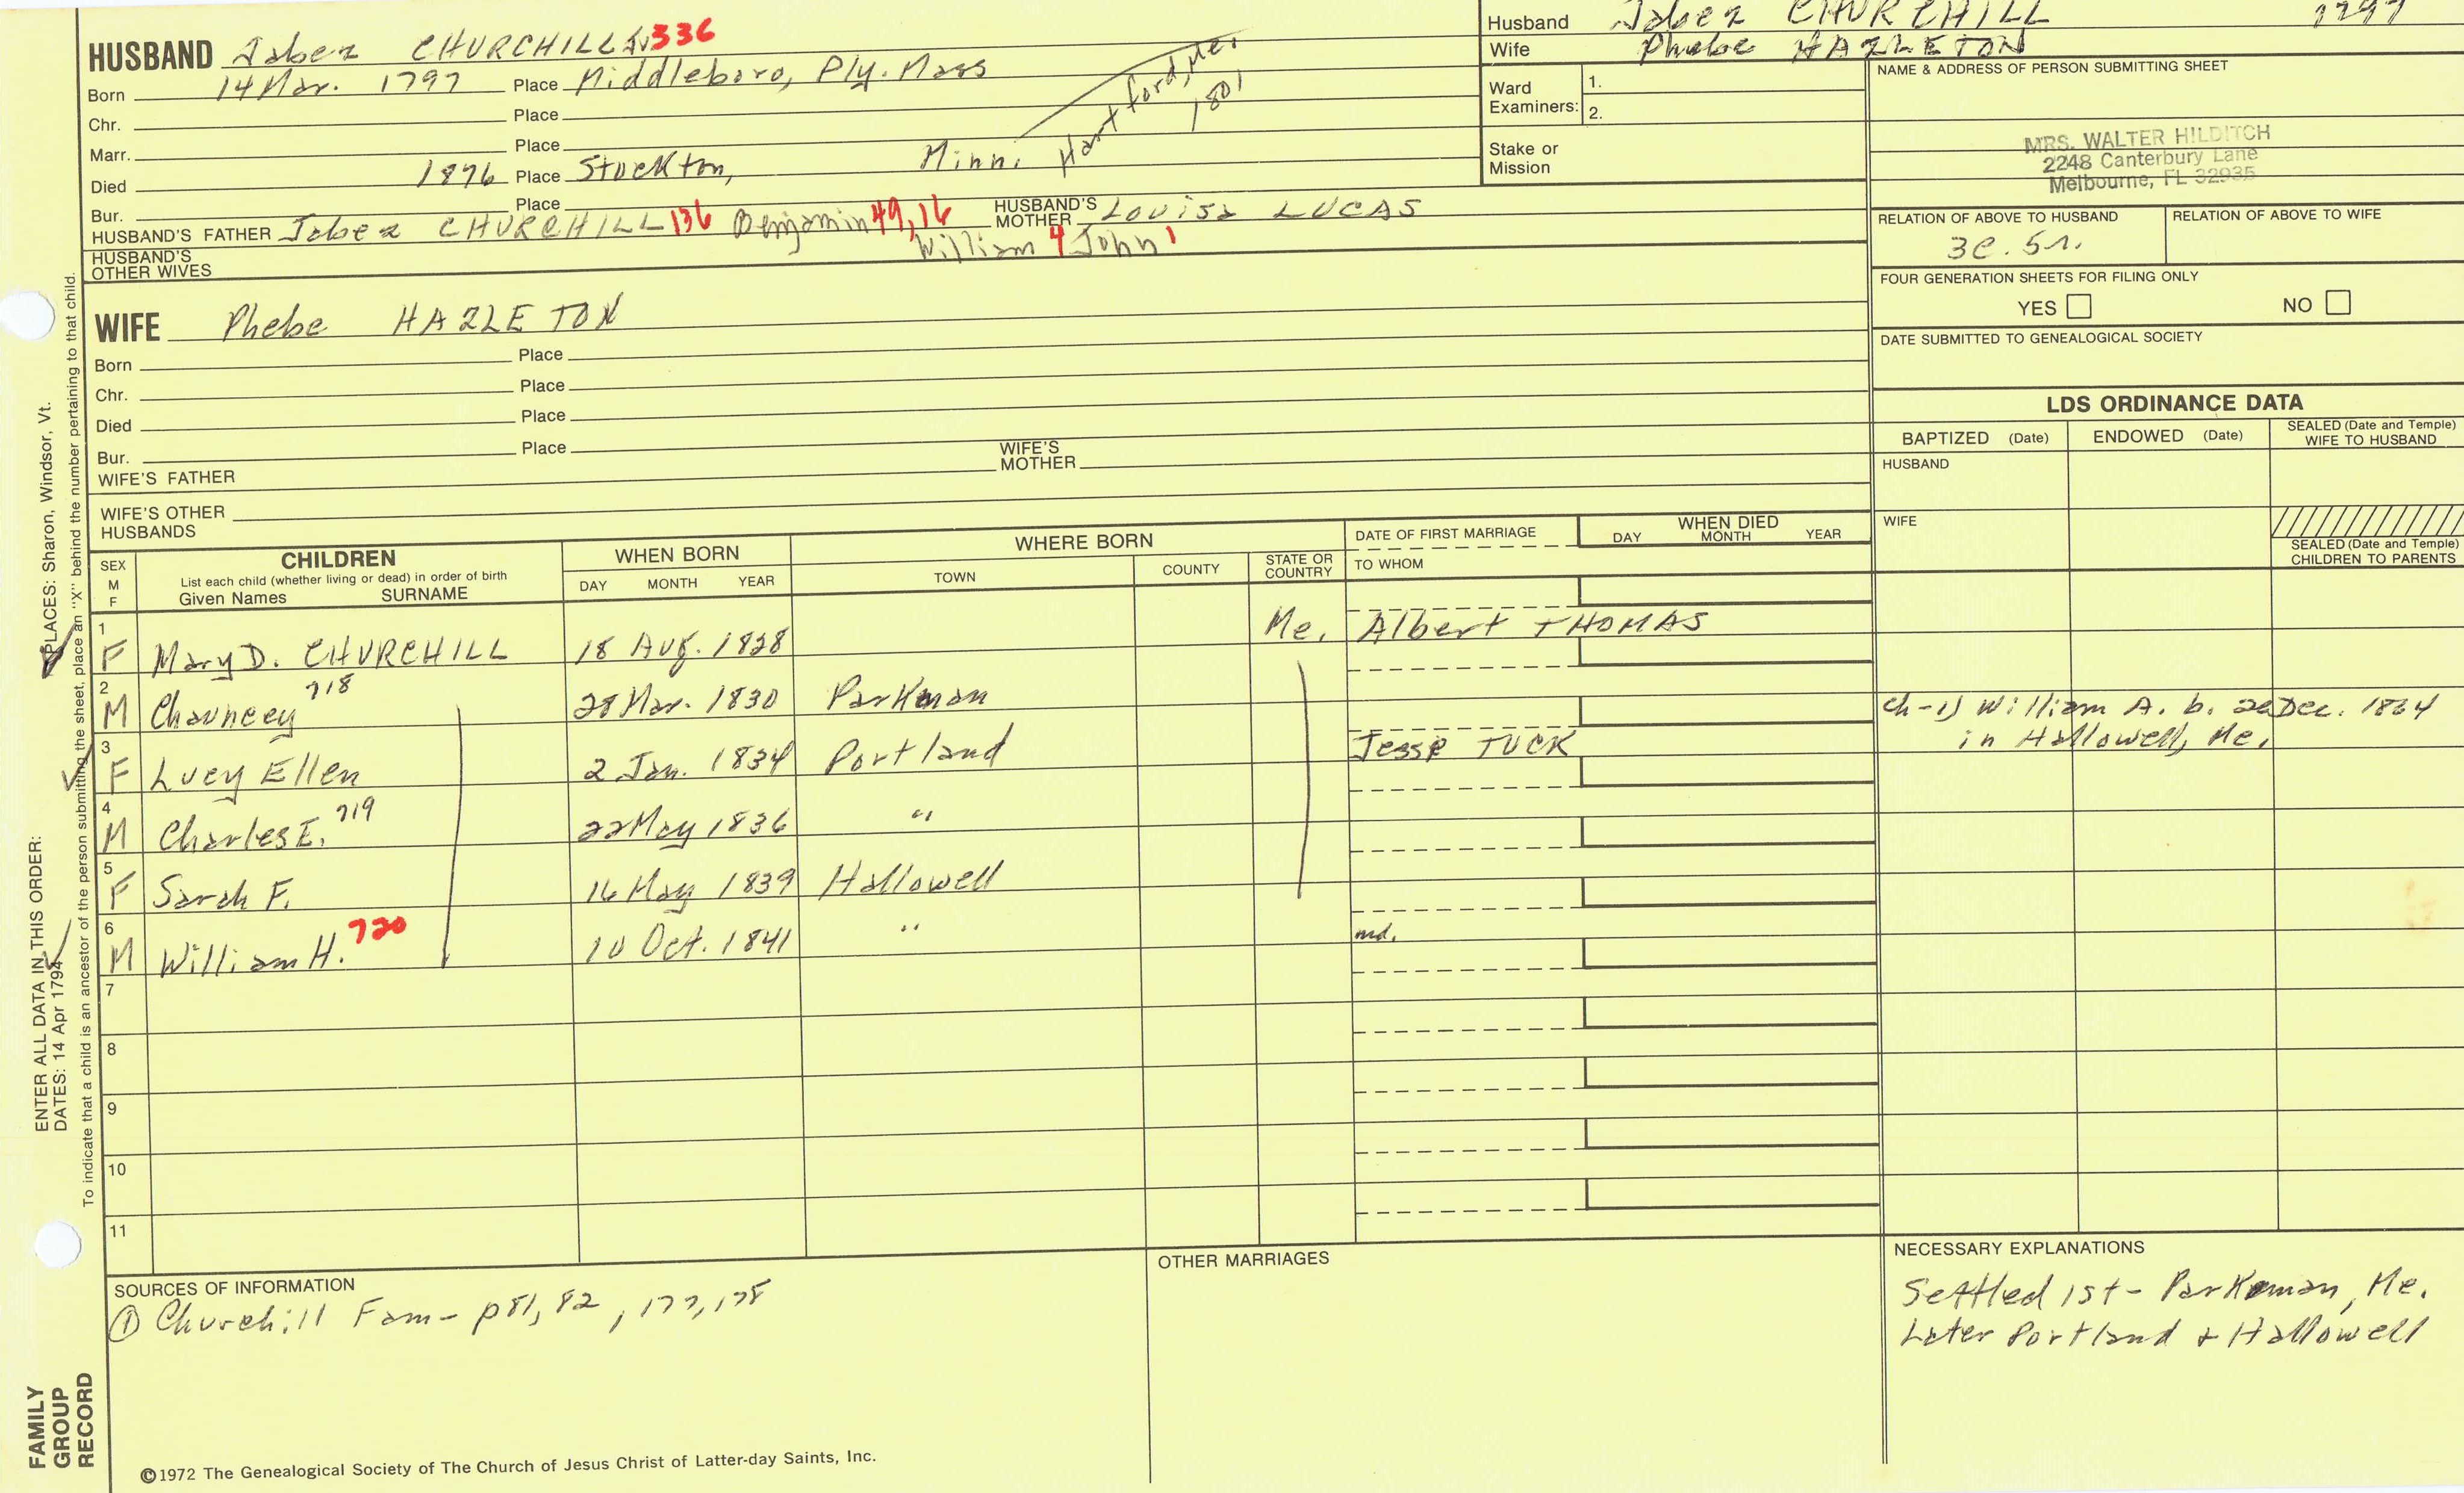 HUSBAND Jabez CHURCHILL IV 336
Born 14 Mar. 1797 Place Middleboro, Ply. Mass
Chr. Place
Marr. Place
Hartford, Me. 1801
Died 1876 Place Stockton, Minn.
Bur. Place
HUSBAND'S FATHER Jabez CHURCHILL 136 Benjamin 49, 16 William 4 John 1
HUSBAND'S MOTHER Louisa LUCAS
HUSBAND'S OTHER WIVES
WIFE Phebe HAZLETON
Born Place
Chr. Place
Died Place
Bur. Place
WIFE'S FATHER
WIFE'S MOTHER
WIFE'S OTHER HUSBANDS
Husband Jabez CHURCHILL 1797
Wife Phebe HAZLETON
Ward Examiners: 1.
2.
Stake or Mission
NAME & ADDRESS OF PERSON SUBMITTING SHEET
MRS. WALTER HILDITCH
2248 Canterbury Lane
Melbourne, FL 32935
RELATION OF ABOVE TO HUSBAND
3c. 5r.
RELATION OF ABOVE TO WIFE
FOUR GENERATION SHEETS FOR FILING ONLY
YES NO
DATE SUBMITTED TO GENEALOGICAL SOCIETY
LDS ORDINANCE DATA
BAPTIZED (Date) ENDOWED (Date) SEALED (Date and Temple) WIFE TO HUSBAND
HUSBAND
WIFE
SEALED (Date and Temple) CHILDREN TO PARENTS
SEX M F
CHILDREN
List each child (whether living or dead) in order of birth
Given Names SURNAME
WHEN BORN
DAY MONTH YEAR
WHERE BORN
TOWN COUNTY STATE OR COUNTRY
DATE OF FIRST MARRIAGE
TO WHOM
WHEN DIED
DAY MONTH YEAR
1 F Mary D. CHURCHILL 18 Aug. 1828 Me. Albert THOMAS
2 M Chauncey 718 28 Mar. 1830 Parkman
Ch-1) William A. b. 20 Dec. 1864
in Hallowell, Me.
3 F Lucy Ellen 2 Jan. 1834 Portland Jesse TUCK
4 M Charles E. 719 22 May 1836 "
5 F Sarah F. 16 May 1839 Hallowell
6 M William H. 720 10 Oct. 1841 " md.
7
8
9
10
11
SOURCES OF INFORMATION
① Churchill Fam- p81, 82, 177, 178
OTHER MARRIAGES
NECESSARY EXPLANATIONS
Settled 1st - Parkman, Me.
Later Portland & Hallowell
©1972 The Genealogical Society of The Church of Jesus Christ of Latter-day Saints, Inc.
FAMILY GROUP RECORD
ENTER ALL DATA IN THIS ORDER:
DATES: 14 Apr 1794
PLACES: Sharon, Windsor, Vt.
To indicate that a child is an ancestor of the person submitting the sheet, place an "X" behind the number pertaining to that child.